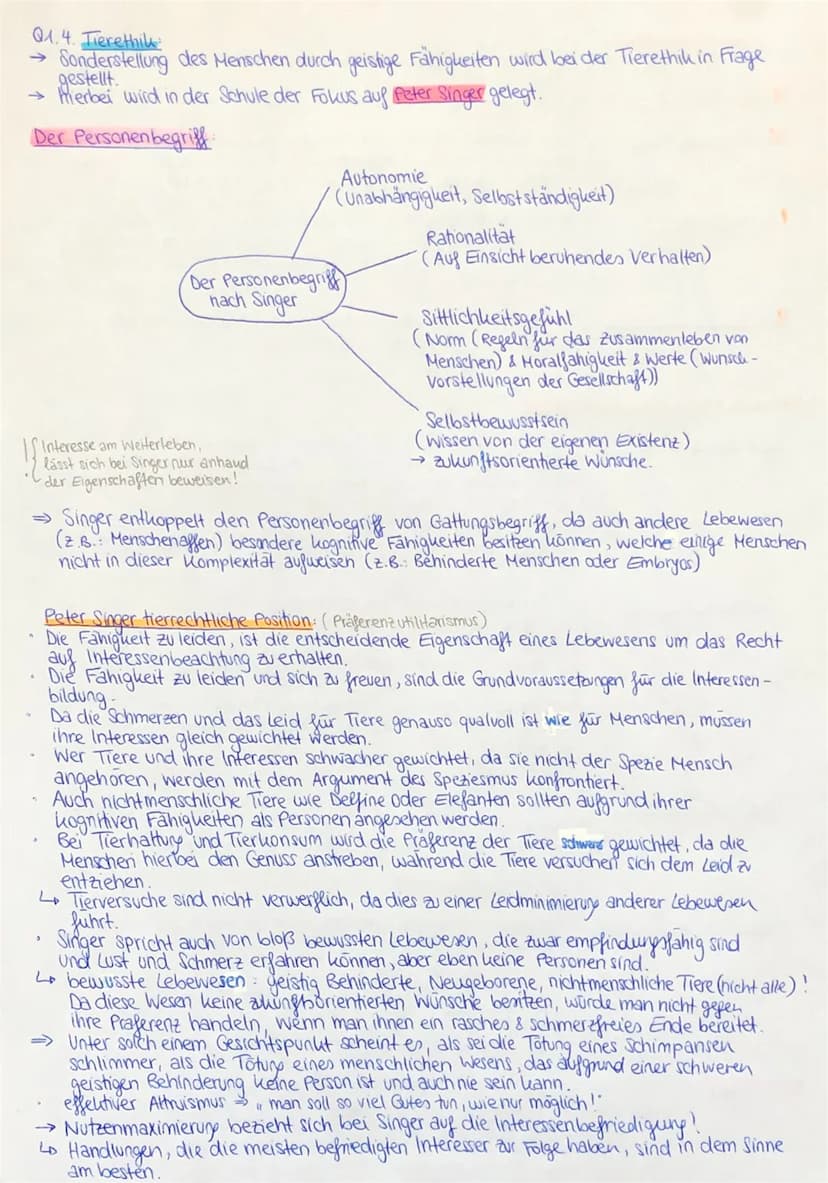 Q1.4. Tierethik:
→ Sonderstellung des Menschen durch geistige Fähigkeiten wird bei der Tierethik in Frage
gestellt.
→ Hierbei wird in der Schule der Fokus auf Peter Singer gelegt.
Der Personenbegriff:
Autonomie
(Unabhängigkeit, Selbstständigkeit)
Rationalität
(Auf Einsicht beruhendes Verhalten)
Der Personenbegriff
nach Singer
Sittlichkeitsgefühl
(Norm (Regeln für das Zusammenleben von
Menschen) & Moralfähigkeit & Werte (Wunsch-
vorstellungen der Gesellschaft))
Selbstbewusstsein
(Wissen von der eigenen Existenz)
→ zukunftsorientierte Wünsche.
! Interesse am Weiterleben,
lässt sich bei Singer nur anhand
der Eigenschaften beweisen!
⇒ Singer entkoppelt den Personenbegriff von Gattungsbegriff, da auch andere Lebewesen
(z.B.: Menschenaffen) besondere kognitive Fähigkeiten besitzen können, welche einige Menschen
nicht in dieser Komplexität aufweisen (z.B.: Behinderte Menschen oder Embryos)
Peter Singer tierrechtliche Position: (Präferenzutilitarismus)
• Die Fähigkeit zu leiden, ist die entscheidende Eigenschaft eines Lebewesens um das Recht
auf Interessenbeachtung zu erhalten.
• Die Fähigkeit zu leiden und sich zu freuen, sind die Grundvoraussetzungen für die Interessen-
bildung.
• Da die Schmerzen und das Leid für Tiere genauso qualvoll ist wie für Menschen, müssen
ihre Interessen gleich gewichtet werden.
• Wer Tiere und ihre Interessen schwächer gewichtet, da sie nicht der Spezie Mensch
angehören, werden mit dem Argument des Speziesmus konfrontiert.
• Auch nichtmenschliche Tiere wie Delfine oder Elefanten sollten aufgrund ihrer
kognitiven Fähigkeiten als Personen angesehen werden.
• Bei Tierhaltung und Tierkonsum wird die Präferenz der Tiere schwerer gewichtet, da die
Menschen hierbei den Genuss anstreben, während die Tiere versuchen sich dem Leid zu
entziehen.
↳ Tierversuche sind nicht verwerflich, da dies zu einer Leidminimierung anderer Lebewesen
führt.
• Singer spricht auch von bloß bewussten Lebewesen, die zwar empfindungsfähig sind
und Lust und Schmerz erfahren können, aber eben keine Personen sind.
↳ bewusste Lebewesen: geistig Behinderte, Neugeborene, nichtmenschliche Tiere (nicht alle)!
Da diese Wesen keine zukunftsorientierten Wünsche besitzen, würde man nicht gegen
ihre Präferenz handeln, wenn man ihnen ein rasches & schmerzfreies Ende bereitet.
⇒ Unter solch einem Gesichtspunkt scheint es, als sei die Tötung eines Schimpansen
schlimmer, als die Tötung eines menschlichen Wesens, das aufgrund einer schweren
geistigen Behinderung keine Person ist und auch nie sein kann.
• effektiver Altruismus ⇒ „man soll so viel Gutes tun, wie nur möglich!"
→ Nutzenmaximierung bezieht sich bei Singer auf die Interessenbefriedigung!
↳ Handlungen, die die meisten befriedigten Interessen zur Folge haben, sind in dem Sinne
am besten.